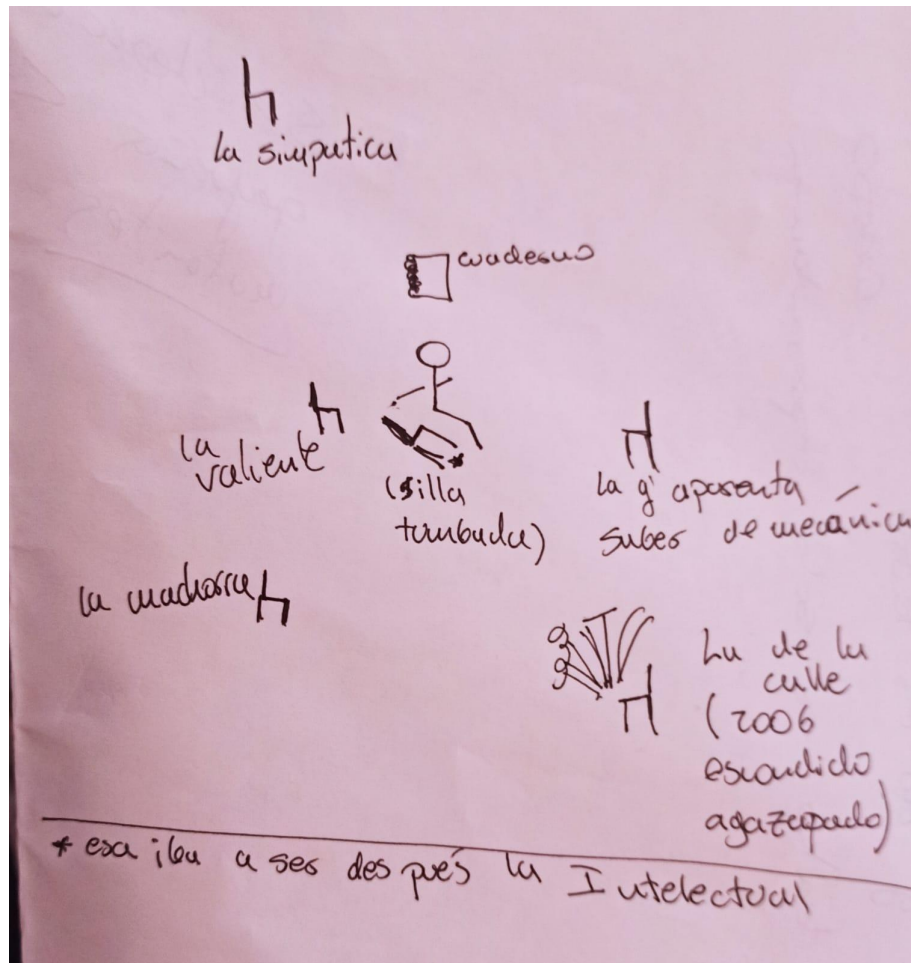 la simpatica
cuaderno
la
valiente
(silla
tumbada)
La q' aparenta
saber de mecánica
la machorra
La de la
calle
(2006
escondido
agazapado)
* esa iba a ser después la Intelectual